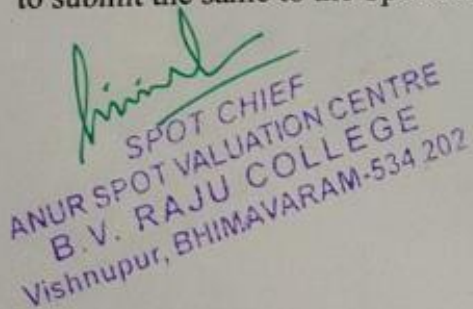 to submit the same to the Spot
SPOT CHIEF
ANUR SPOT VALUATION CENTRE
B.V. RAJU COLLEGE
Vishnupur, BHIMAVARAM-534 202